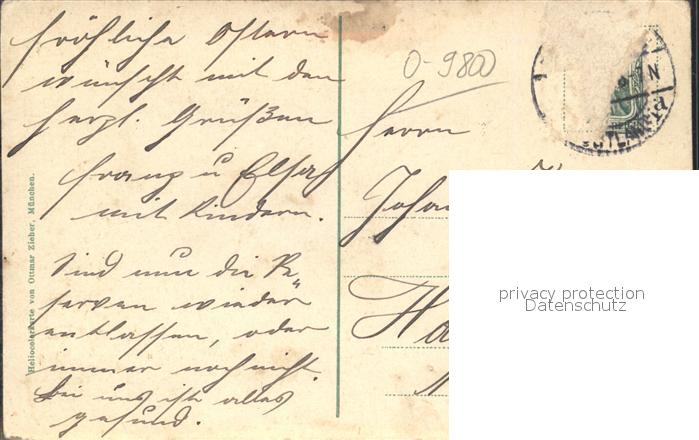 fröhliche Ostern
wünscht mit den
herzl. Grüßen
Franz u Elsa
mit Kindern.
Sind nun die Re
serven wieder
entlassen, oder
immer noch nicht.
Bei uns ist alles
gesund.
Heliocolorkarte von Ottmar Zieher, München.
0-980
Herrn
Joha
Ha
N
privacy protection
Datenschutz